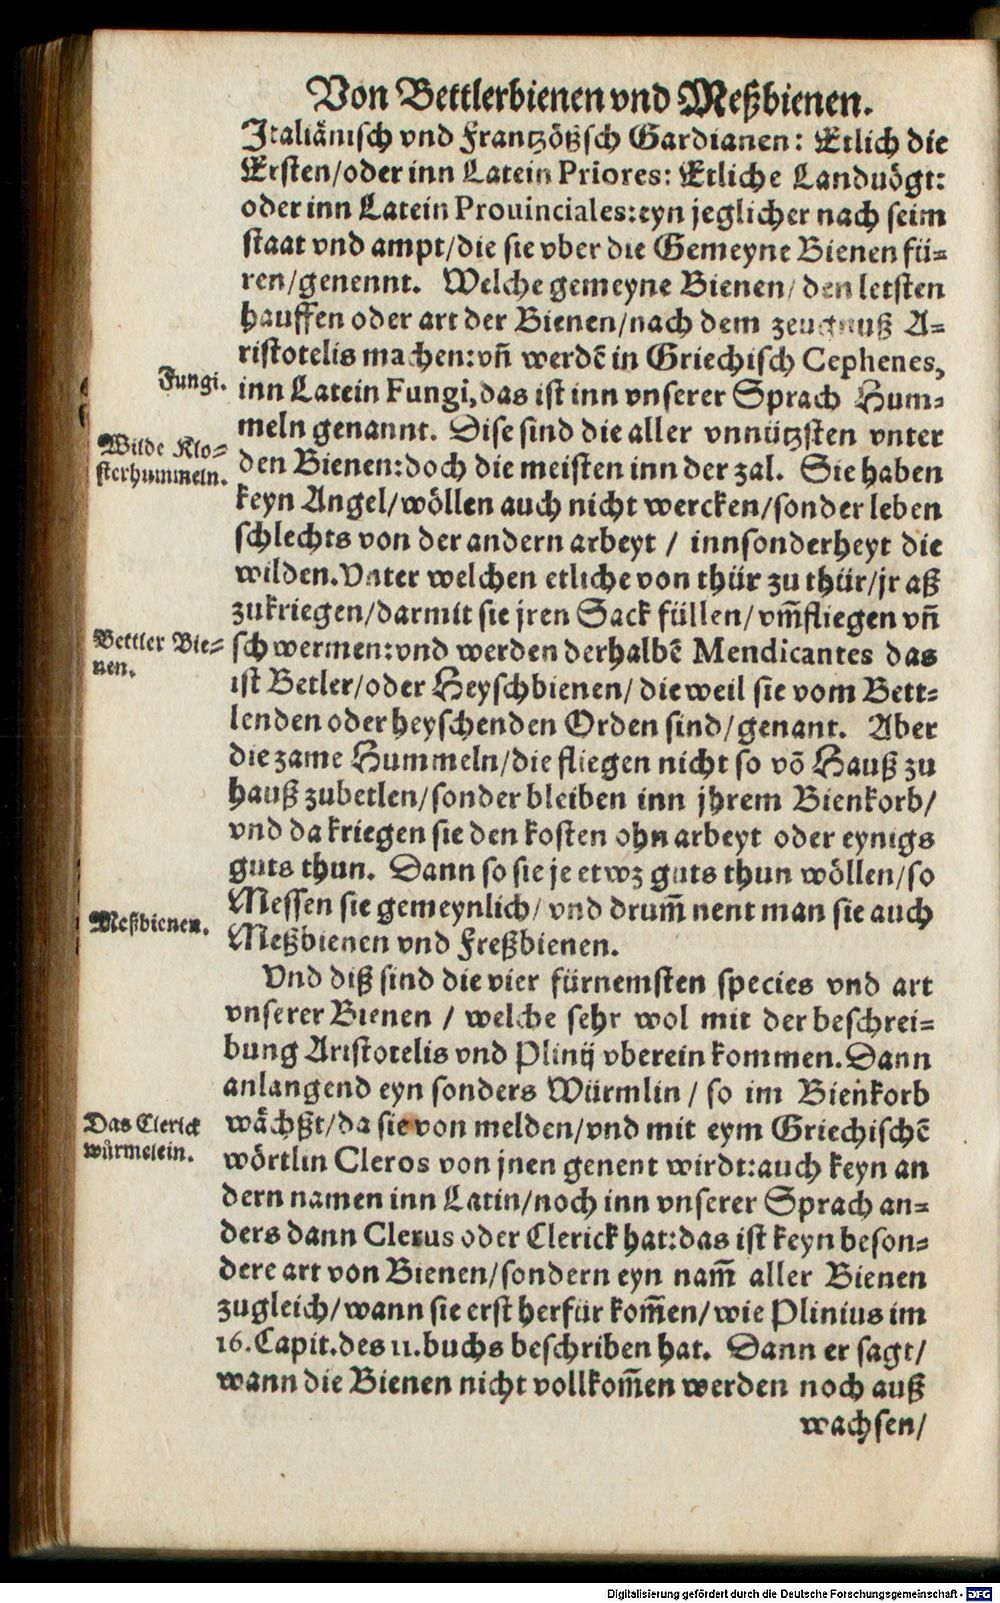 Von Bettlerbienen vnd Meßbienen.
Italiänisch vnd Frantzößsch Gardianen: Etlich die
Ersten/oder inn Latein Priores: Etliche Landuögt:
oder inn Latein Prouinciales: eyn jeglicher nach seim
staat vnd ampt/die sie vber die Gemeyne Bienen fü=
ren/genennt. Welche gemeyne Bienen/den letsten
hauffen oder art der Bienen/nach dem zeugnuß A=
ristotelis machen: vñ werdē in Griechisch Cephenes,
Fungi.
inn Latein Fungi, das ist inn vnserer Sprach Hum=
meln genannt. Dise sind die aller vnnützsten vnter
Wilde Klo=
sterhummeln.
den Bienen: doch die meisten inn der zal. Sie haben
keyn Angel/wöllen auch nicht wercken/sonder leben
schlechts von der andern arbeyt / innsonderheyt die
wilden. Vnter welchen etliche von thür zu thür/jr aß
zukriegen/darmit sie jren Sack füllen/vm̄fliegen vñ
Bettler Bie=
nen.
schwermen: vnd werden derhalbē Mendicantes das
ist Betler/oder Heyschbienen/dieweil sie vom Bett=
lenden oder heyschenden Orden sind/genant. Aber
die zame Hummeln/die fliegen nicht so võ Hauß zu
hauß zubetlen/sonder bleiben inn jhrem Bienkorb/
vnd da kriegen sie den kosten ohn arbeyt oder eynigs
guts thun. Dann so sie je etwz guts thun wöllen/so
Meßbienen.
Messen sie gemeynlich/vnd drum̄ nent man sie auch
Meßbienen vnd Freßbienen.
Vnd diß sind die vier fürnemsten species vnd art
vnserer Bienen / welche sehr wol mit der beschrei=
bung Aristotelis vnd Plinij vberein kommen. Dann
anlangend eyn sonders Würmlin / so im Bienkorb
Das Clerick
würmelein.
wächßt/da sie von melden/vnd mit eym Griechischē
wörtlin Cleros von jnen genent wirdt: auch keyn an
dern namen inn Latin/noch inn vnserer Sprach an=
ders dann Clerus oder Clerick hat: das ist keyn beson=
dere art von Bienen/sondern eyn nam̄ aller Bienen
zugleich/wann sie erst herfür kom̄en/wie Plinius im
16. Capit. des 11. buchs beschriben hat. Dann er sagt/
wann die Bienen nicht vollkom̄en werden noch auß
wachsen/
Digitalisierung gefördert durch die Deutsche Forschungsgemeinschaft - DFG